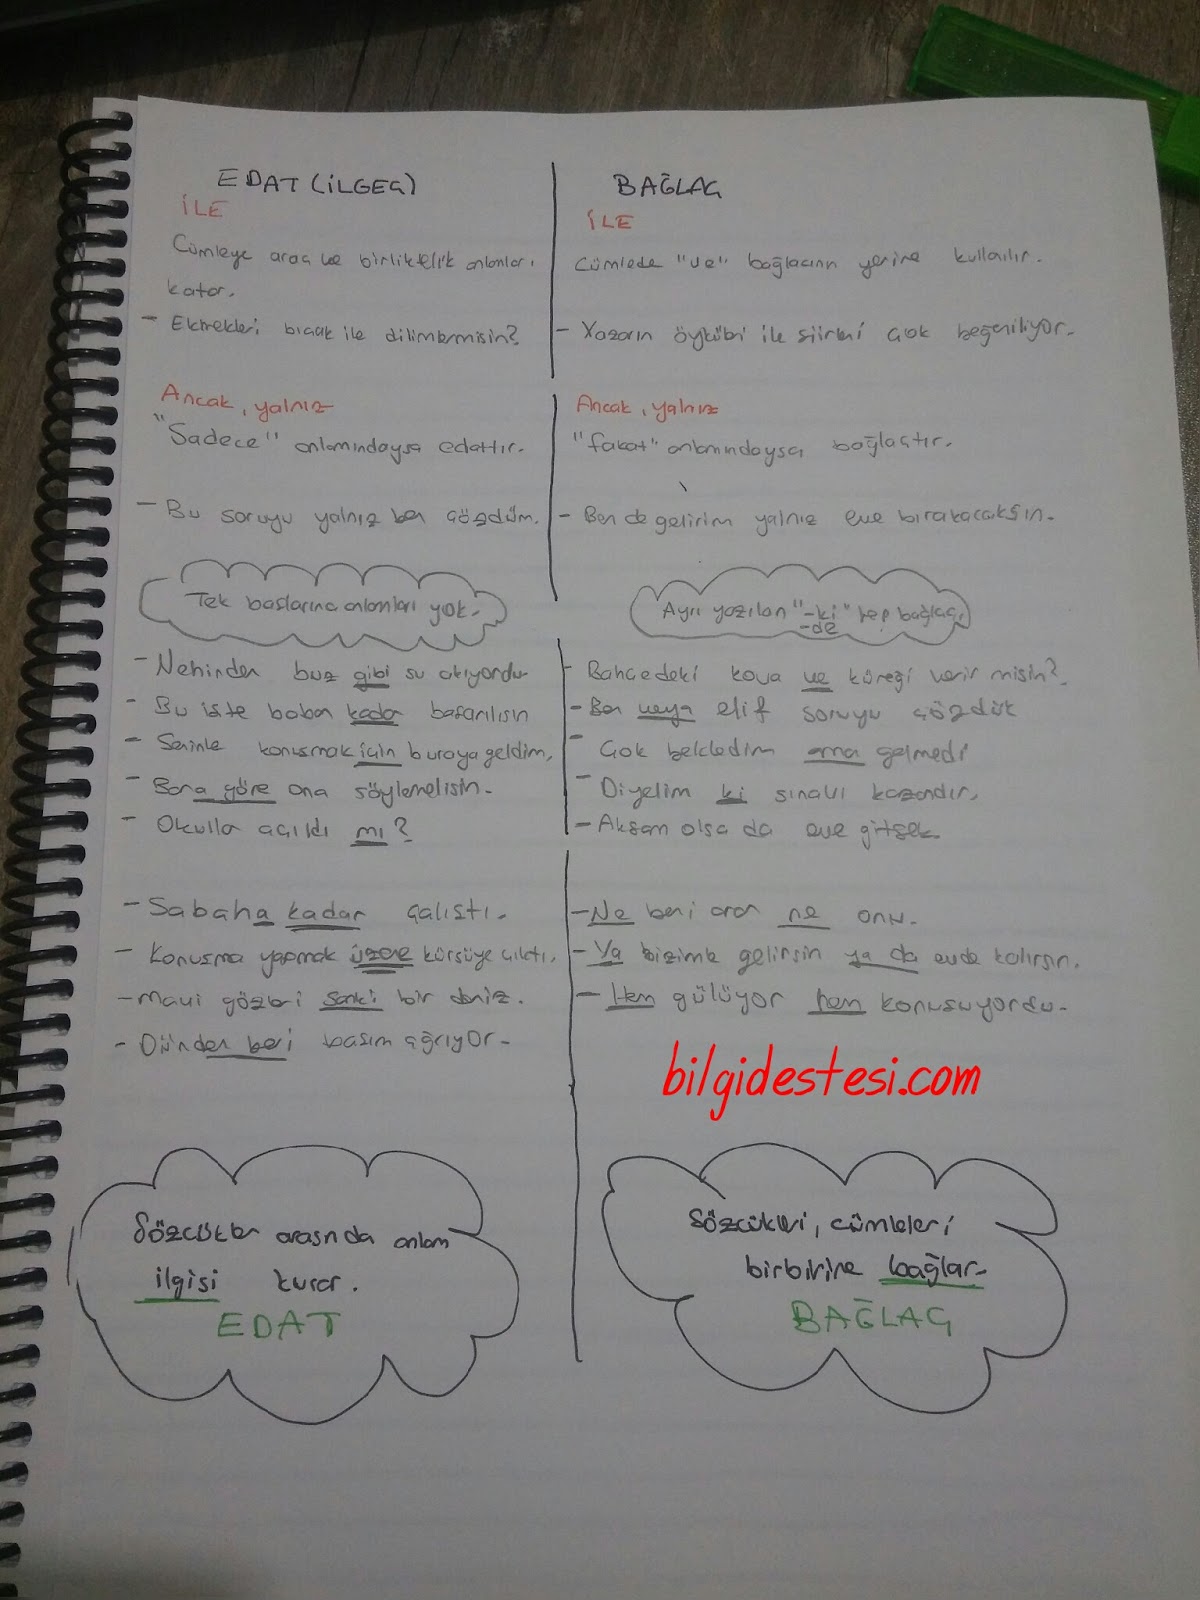 EDAT (İLGEÇ)
İLE
Cümleye araç ve birliktelik anlamları
katar.
- Ekmekleri bıçak ile dilimlermisin?
Ancak, yalnız
"Sadece" anlamındaysa edattır.
- Bu soruyu yalnız ben çözdüm.
Tek başlarına anlamları yok.
- Nehirden buz gibi su akıyordu
- Bu işte baban kadar başarılısın
- Seninle konuşmak için buraya geldim.
- Bana göre ona söylemelisin.
- Okullar açıldı mı?
- Sabaha kadar çalıştı.
- Konuşma yapmak üzere kürsüye çıktı.
- Mavi gözleri sanki bir deniz.
- Dünden beri başım ağrıyor.
Sözcükler arasında anlam
ilgisi kurar.
EDAT
BAĞLAÇ
İLE
Cümlede "ve" bağlacının yerine kullanılır.
- Yazarın öyküleri ile şiirleri çok beğeniliyor.
Ancak, yalnız
"fakat" anlamındaysa bağlaçtır.
- Ben de gelirim yalnız eve bırakacaksın.
Ayrı yazılan "-ki" hep bağlaç
-de
- Bahçedeki kova ve küreği verir misin?
- Ben veya elif soruyu çözdük
- Çok bekledim ama gelmedi
- Diyelim ki sınavı kazandın,
- Akşam olsa da eve gitsek.
- Ne beni arar ne onu.
- Ya bizimle gelirsin ya da evde kalırsın.
- Hem gülüyor hem konuşuyordu.
bilgidestesi.com
Sözcükleri, cümleleri
birbirine bağlar.
BAĞLAÇ